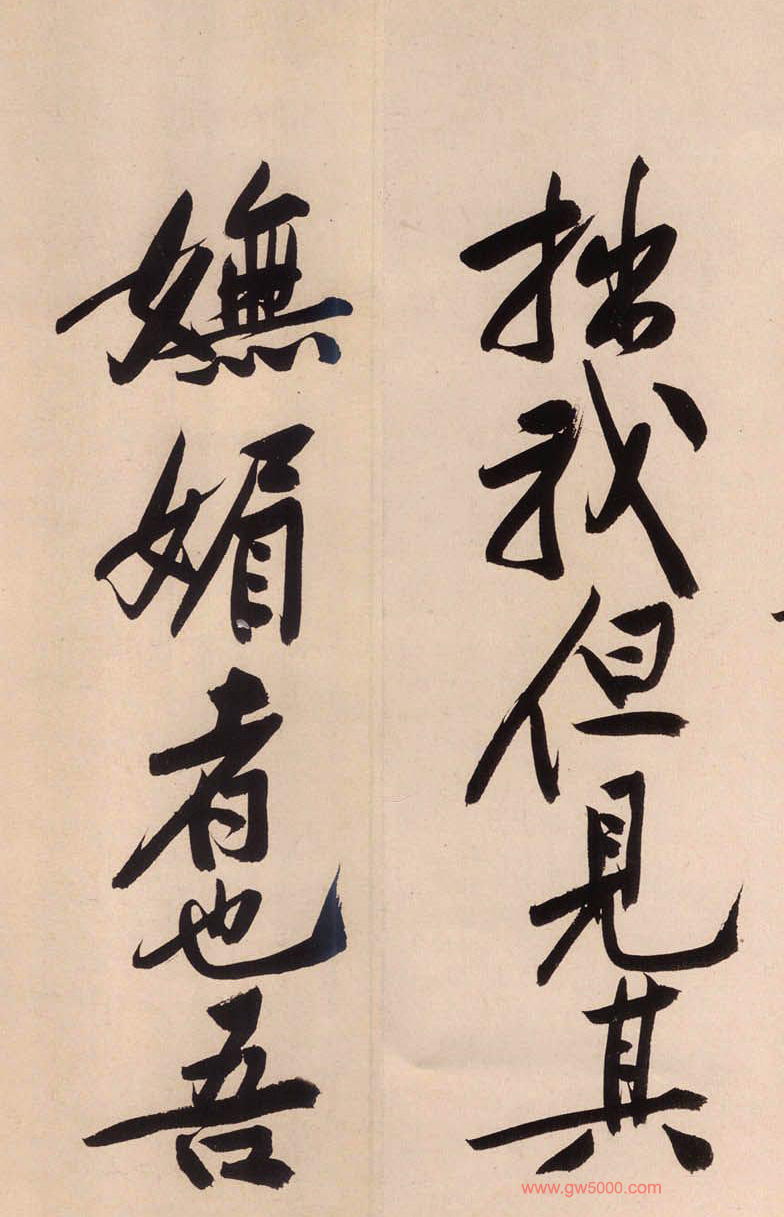 拙我但見其
嫵媚者也吾
www.gw5000.com